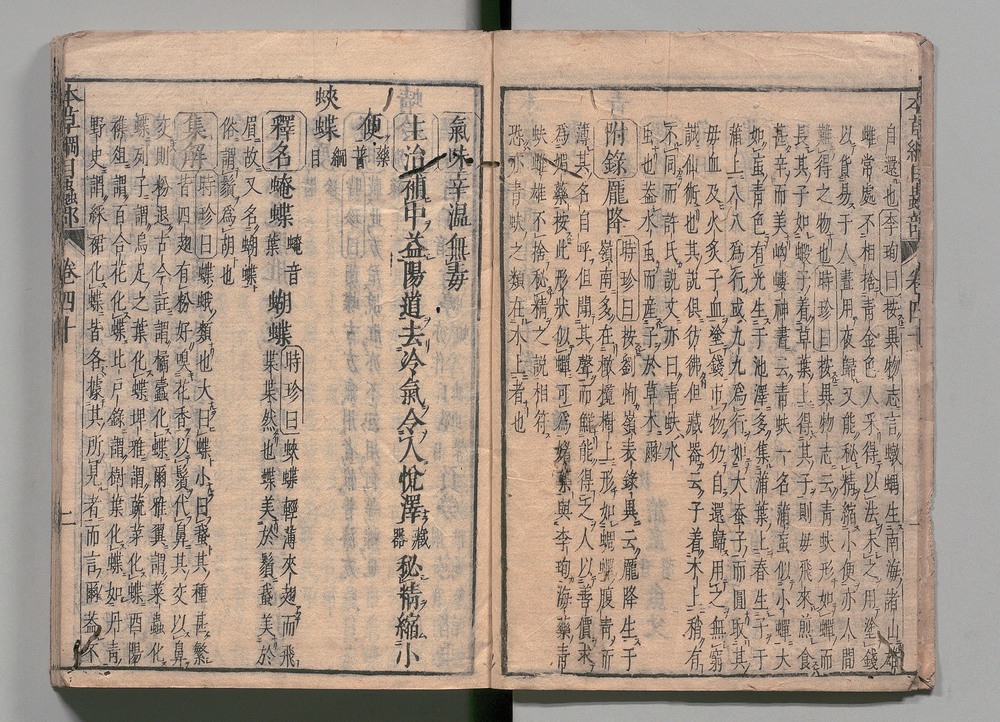 自還也李珣曰按異物志言蟓蝸生南海諸山
雌常處不相捨青金色人采得以法末之用塗錢
以貨易于人晝用夜歸又能秘精縮小便亦人間
難得之物也時珍曰按異物志云青蚨形如蟬而
長其子如蝦子着草葉上得其子則母飛來煎食
甚辛而美岣嶁神書云青蚨一名蒲䖟似小蟬大
如䖟青色有光生于池澤多集蒲葉上春生子于
蒲上八八爲行或九九爲行如大蚕子而圓取其
母血及火炙子血塗錢市物仍自還歸用之無窮
誠仙術也其說俱彷彿但藏器云子着木上稍有
不同而許氏說文亦曰青蚨水
虫也盖水虫而産子於草木爾
附錄龎降時珍曰按劉恂嶺表錄異云龎降生于
嶺南多在橄欖樹上形如蜩蟬腹青而
薄其名自呼但聞其聲而鮮能得之人以善價求
爲媚藥按此形狀似蟬可爲媚藥與李珣海藥青
蚨雌雄不捨秘精之説相符
恐亦青蚨之類在木上者也
氣味辛温無毒
生治補中益陽道去冷氣令人悅澤藏器秘精縮小
便藥普
蛺蝶綱目
釋名蝶音葉蝴蝶時珍曰蛺蝶輕薄夾翅而飛
葉葉然也蝶美於鬚蛾美於
眉故又名蝴蝶
俗謂鬚爲胡也
集解時珍曰蝶蛾類也大曰蝶小曰蛾其種甚繁
皆四翅有粉好嗅花香以鬚代鼻其交以鼻
交則粉退古今註謂橘蠹化蝶爾雅翼謂菜蟲化
蝶列子謂烏足之葉化蝶埤雅謂蔬菜化蝶酉陽
雜俎謂百合花化蝶北戶錄謂樹葉化蝶如丹青
野史謂綵裙化蝶皆各據其所見者而言爾盖不
本草綱目蟲部 卷四十